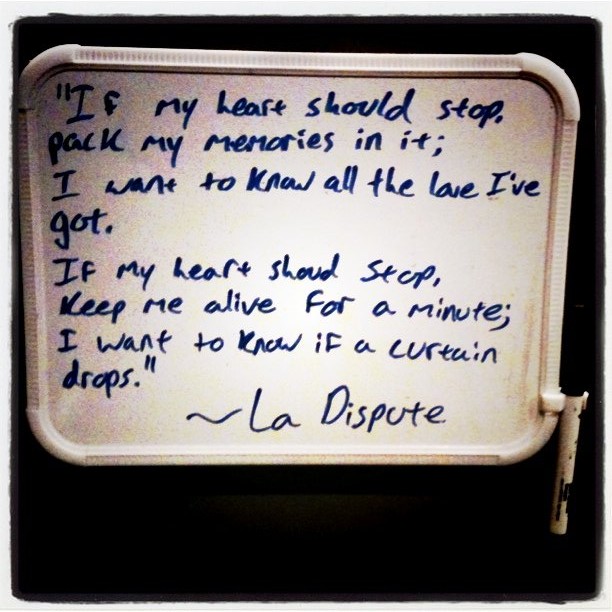 "If my heart should stop,
pack my memories in it;
I want to know all the love I've
got.
If my heart shoud stop,
Keep me alive for a minute;
I want to know if a curtain
drops."
~La Dispute